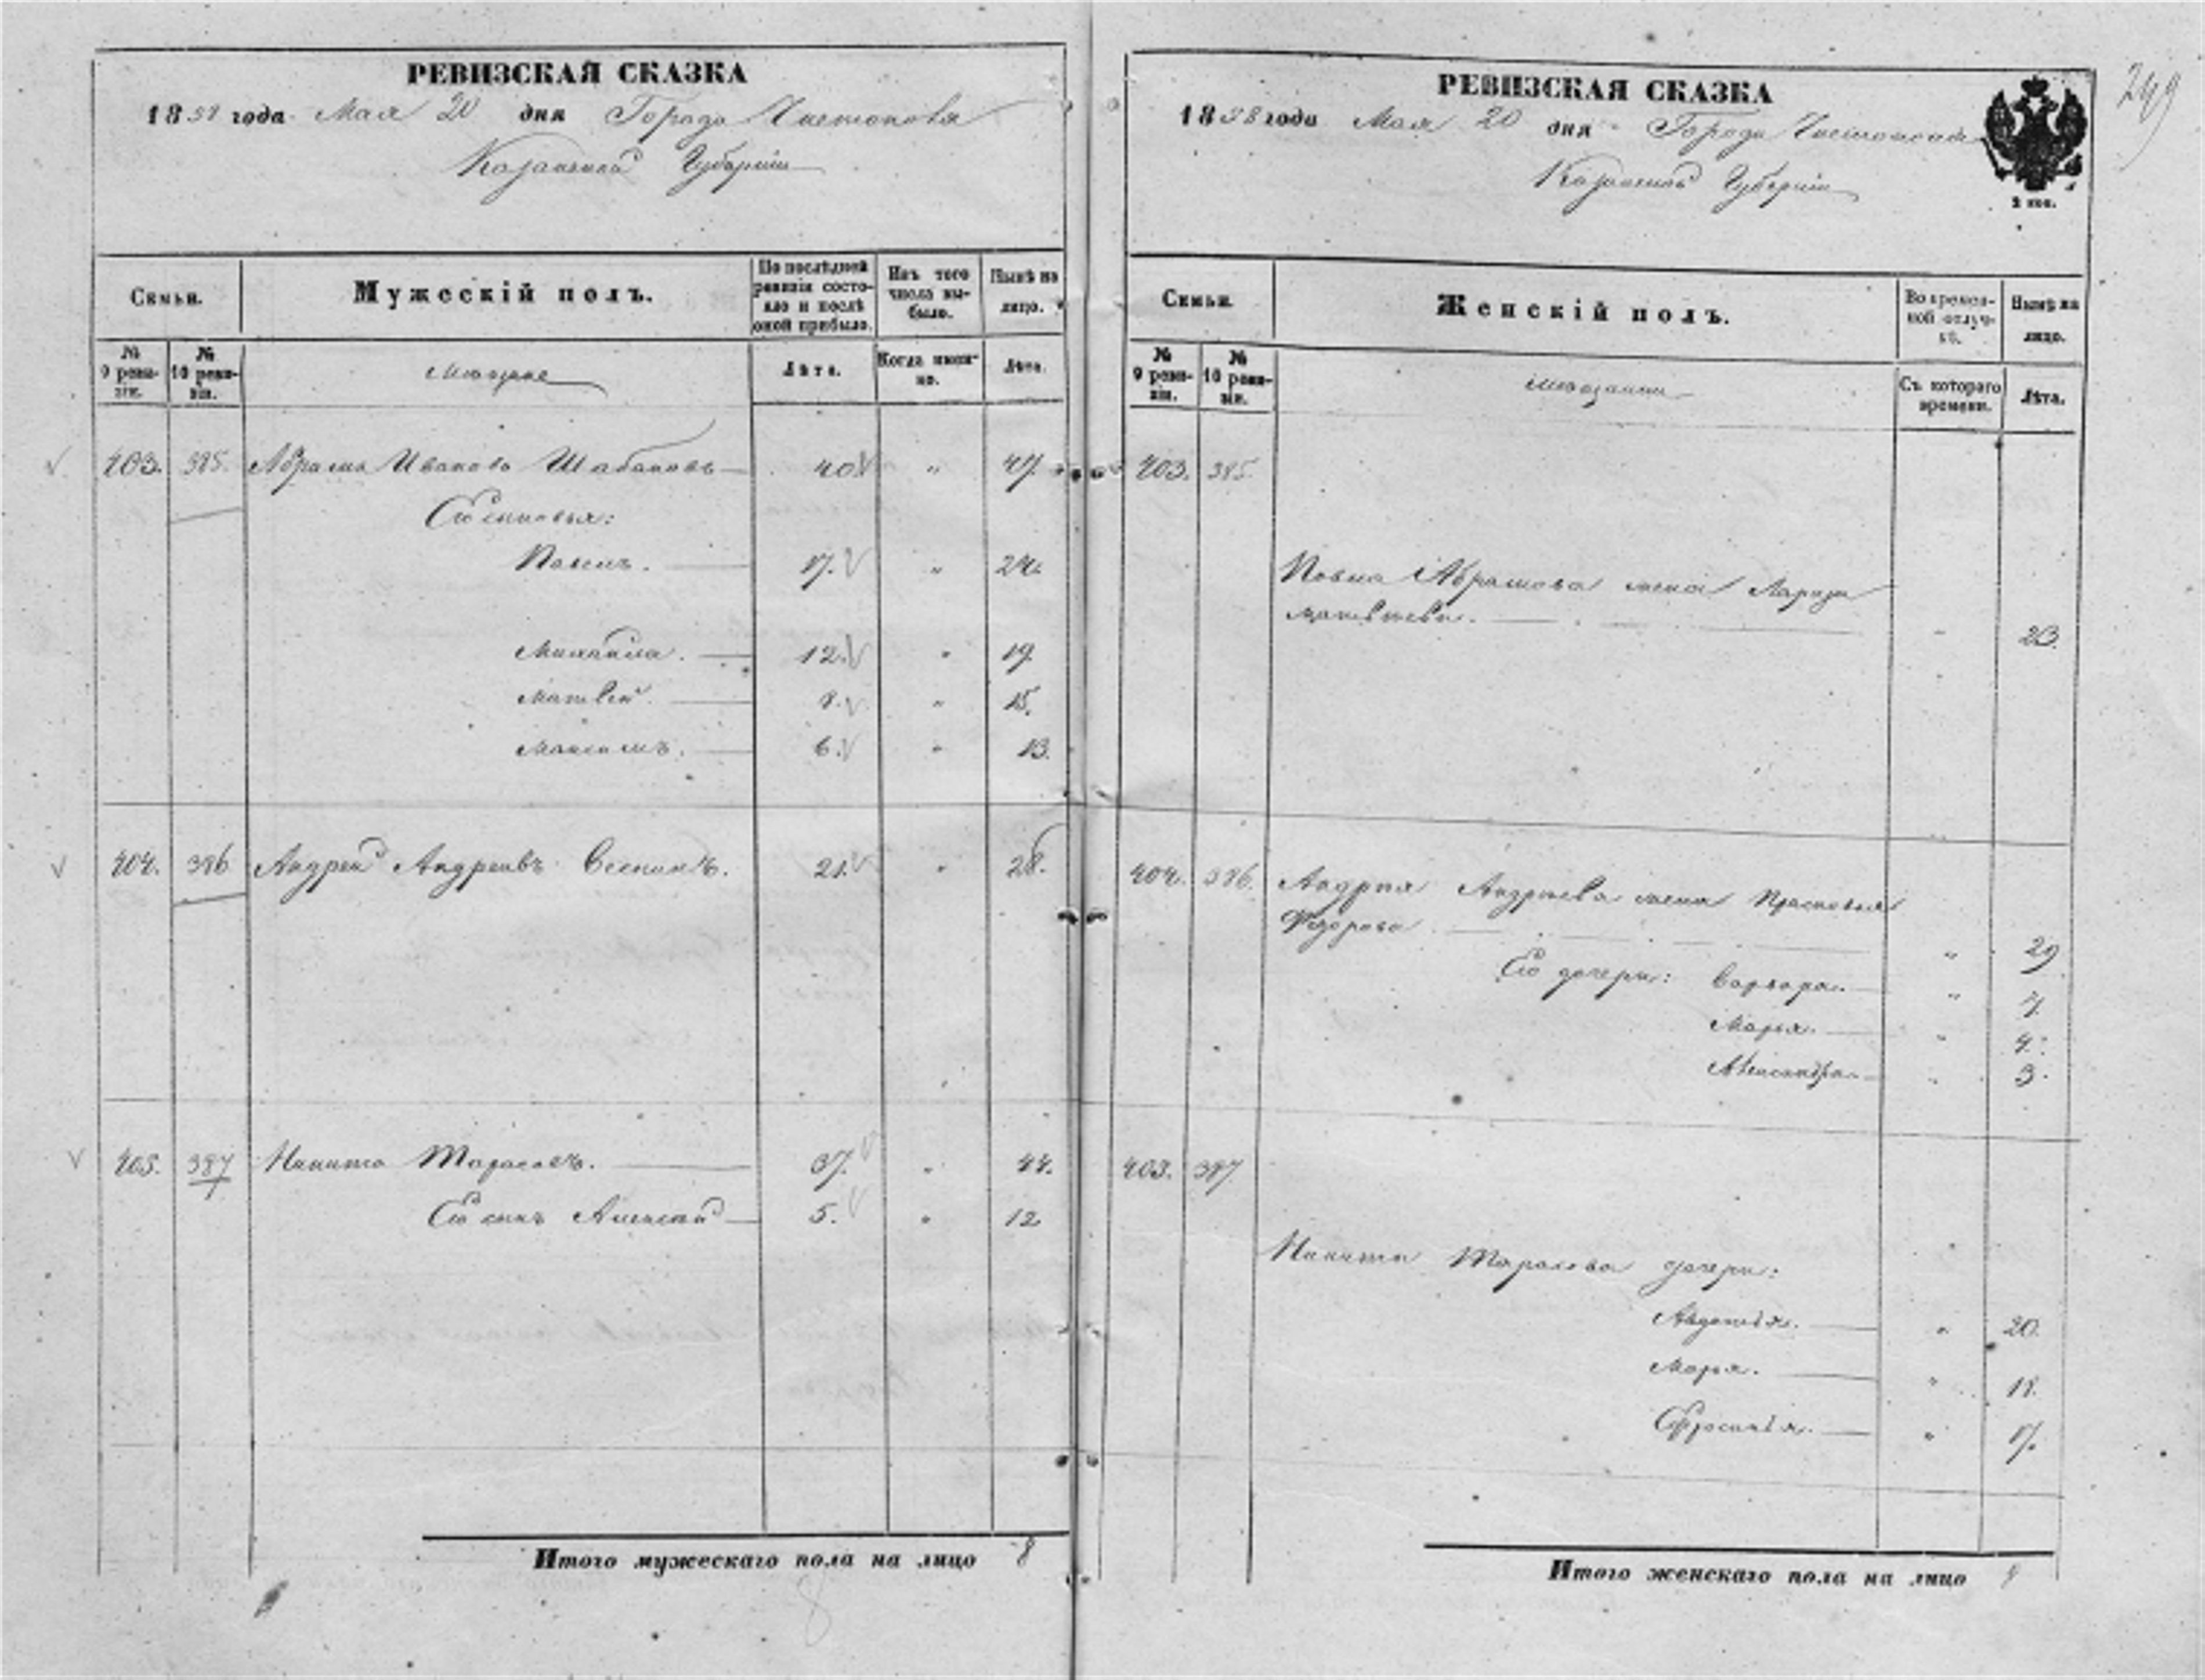 РЕВИЗСКАЯ СКАЗКА
1858 года Мая 20 дня Города Чистополя
Казанской Губернiи
Семьи.
Мужескiй полъ.
По последней ревизiи состояло и послѣ оной прибыло.
Изъ того числа выбыло.
Нынѣ на лицо.
№ 9 ревизiи.
№ 10 ревизiи.
Мещане
Лѣта.
Когда именно.
Лѣта.
403. 385. Абрамъ Ивановъ Шабановъ 40 " 47.
Его сыновья:
17. " 24.
Михайла. 12. " 19
Матвей. 8. " 15.
Максимъ. 6. " 13.
404. 386 Андрей Андреевъ 21. " 28.
405. 387 Никита Тарасовъ. 37. " 44.
Его сынъ Алексей 5. " 12
Итого мужескаго пола на лицо 8
8
РЕВИЗСКАЯ СКАЗКА
1858 года Мая 20 дня Города Чистополя
Казанской Губернiи
2 коп.
249
Семьи.
Женскiй полъ.
Во временной отлучкѣ.
Нынѣ на лицо.
№ 9 ревизiи.
№ 10 ревизiи.
Мещанки
Съ котораго времени.
Лѣта.
403. 385.
Абрамова жена
Матвѣева. " 23.
404. 386. Андрея Андрѣева жена Прасковья
Федорова " 29
Его дочери: Варвара. " 7.
Марья. " 4.
Александра " 3.
405. 387
Никиты Тарасова дочери:
Авдотья. " 20.
Марья. " 18.
Ефросинья. " 17.
Итого женскаго пола на лицо